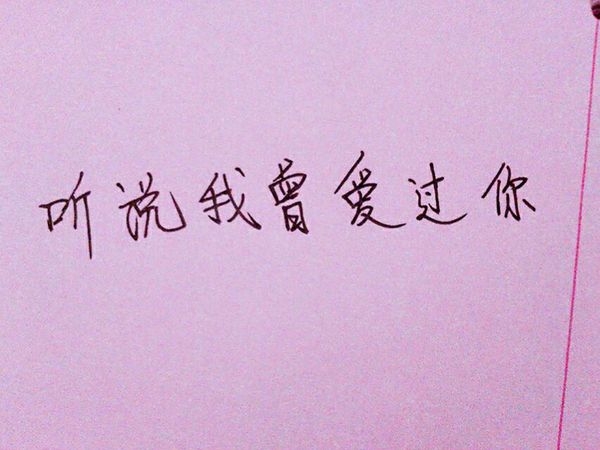 听说我曾爱过你